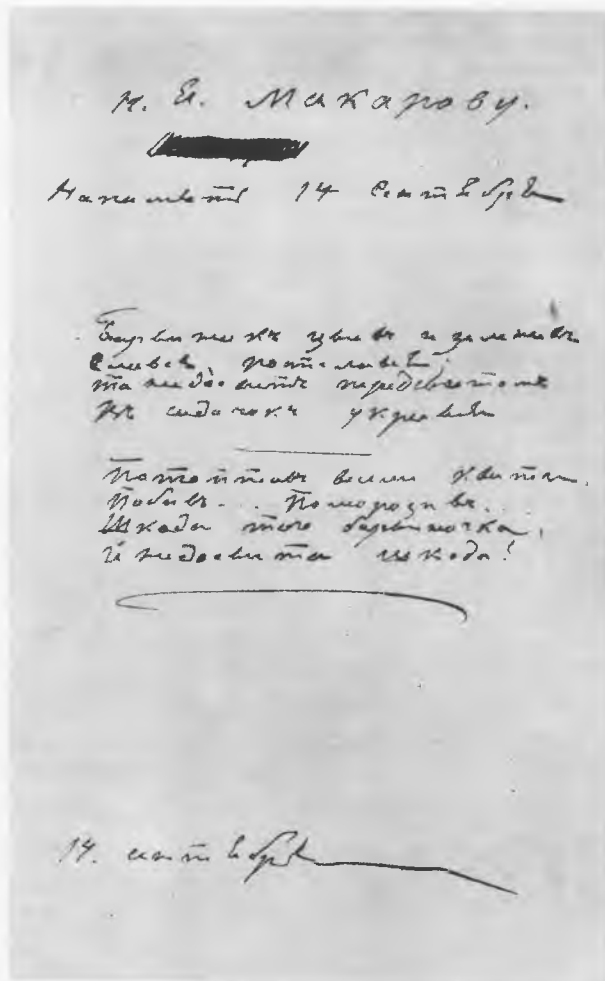 Н. Я. Макарову.
Напамять 14 Сентября
Барвинокъ цвивъ и зеленивъ
Слався ростилався
та недосвитъ передсвитомъ
въ садочокъ укрався
Потоптавъ веселi квiты.
Побивъ... Поморозивъ..
Шкода того барвиночка,
й недосвита шкода!
14. сентября